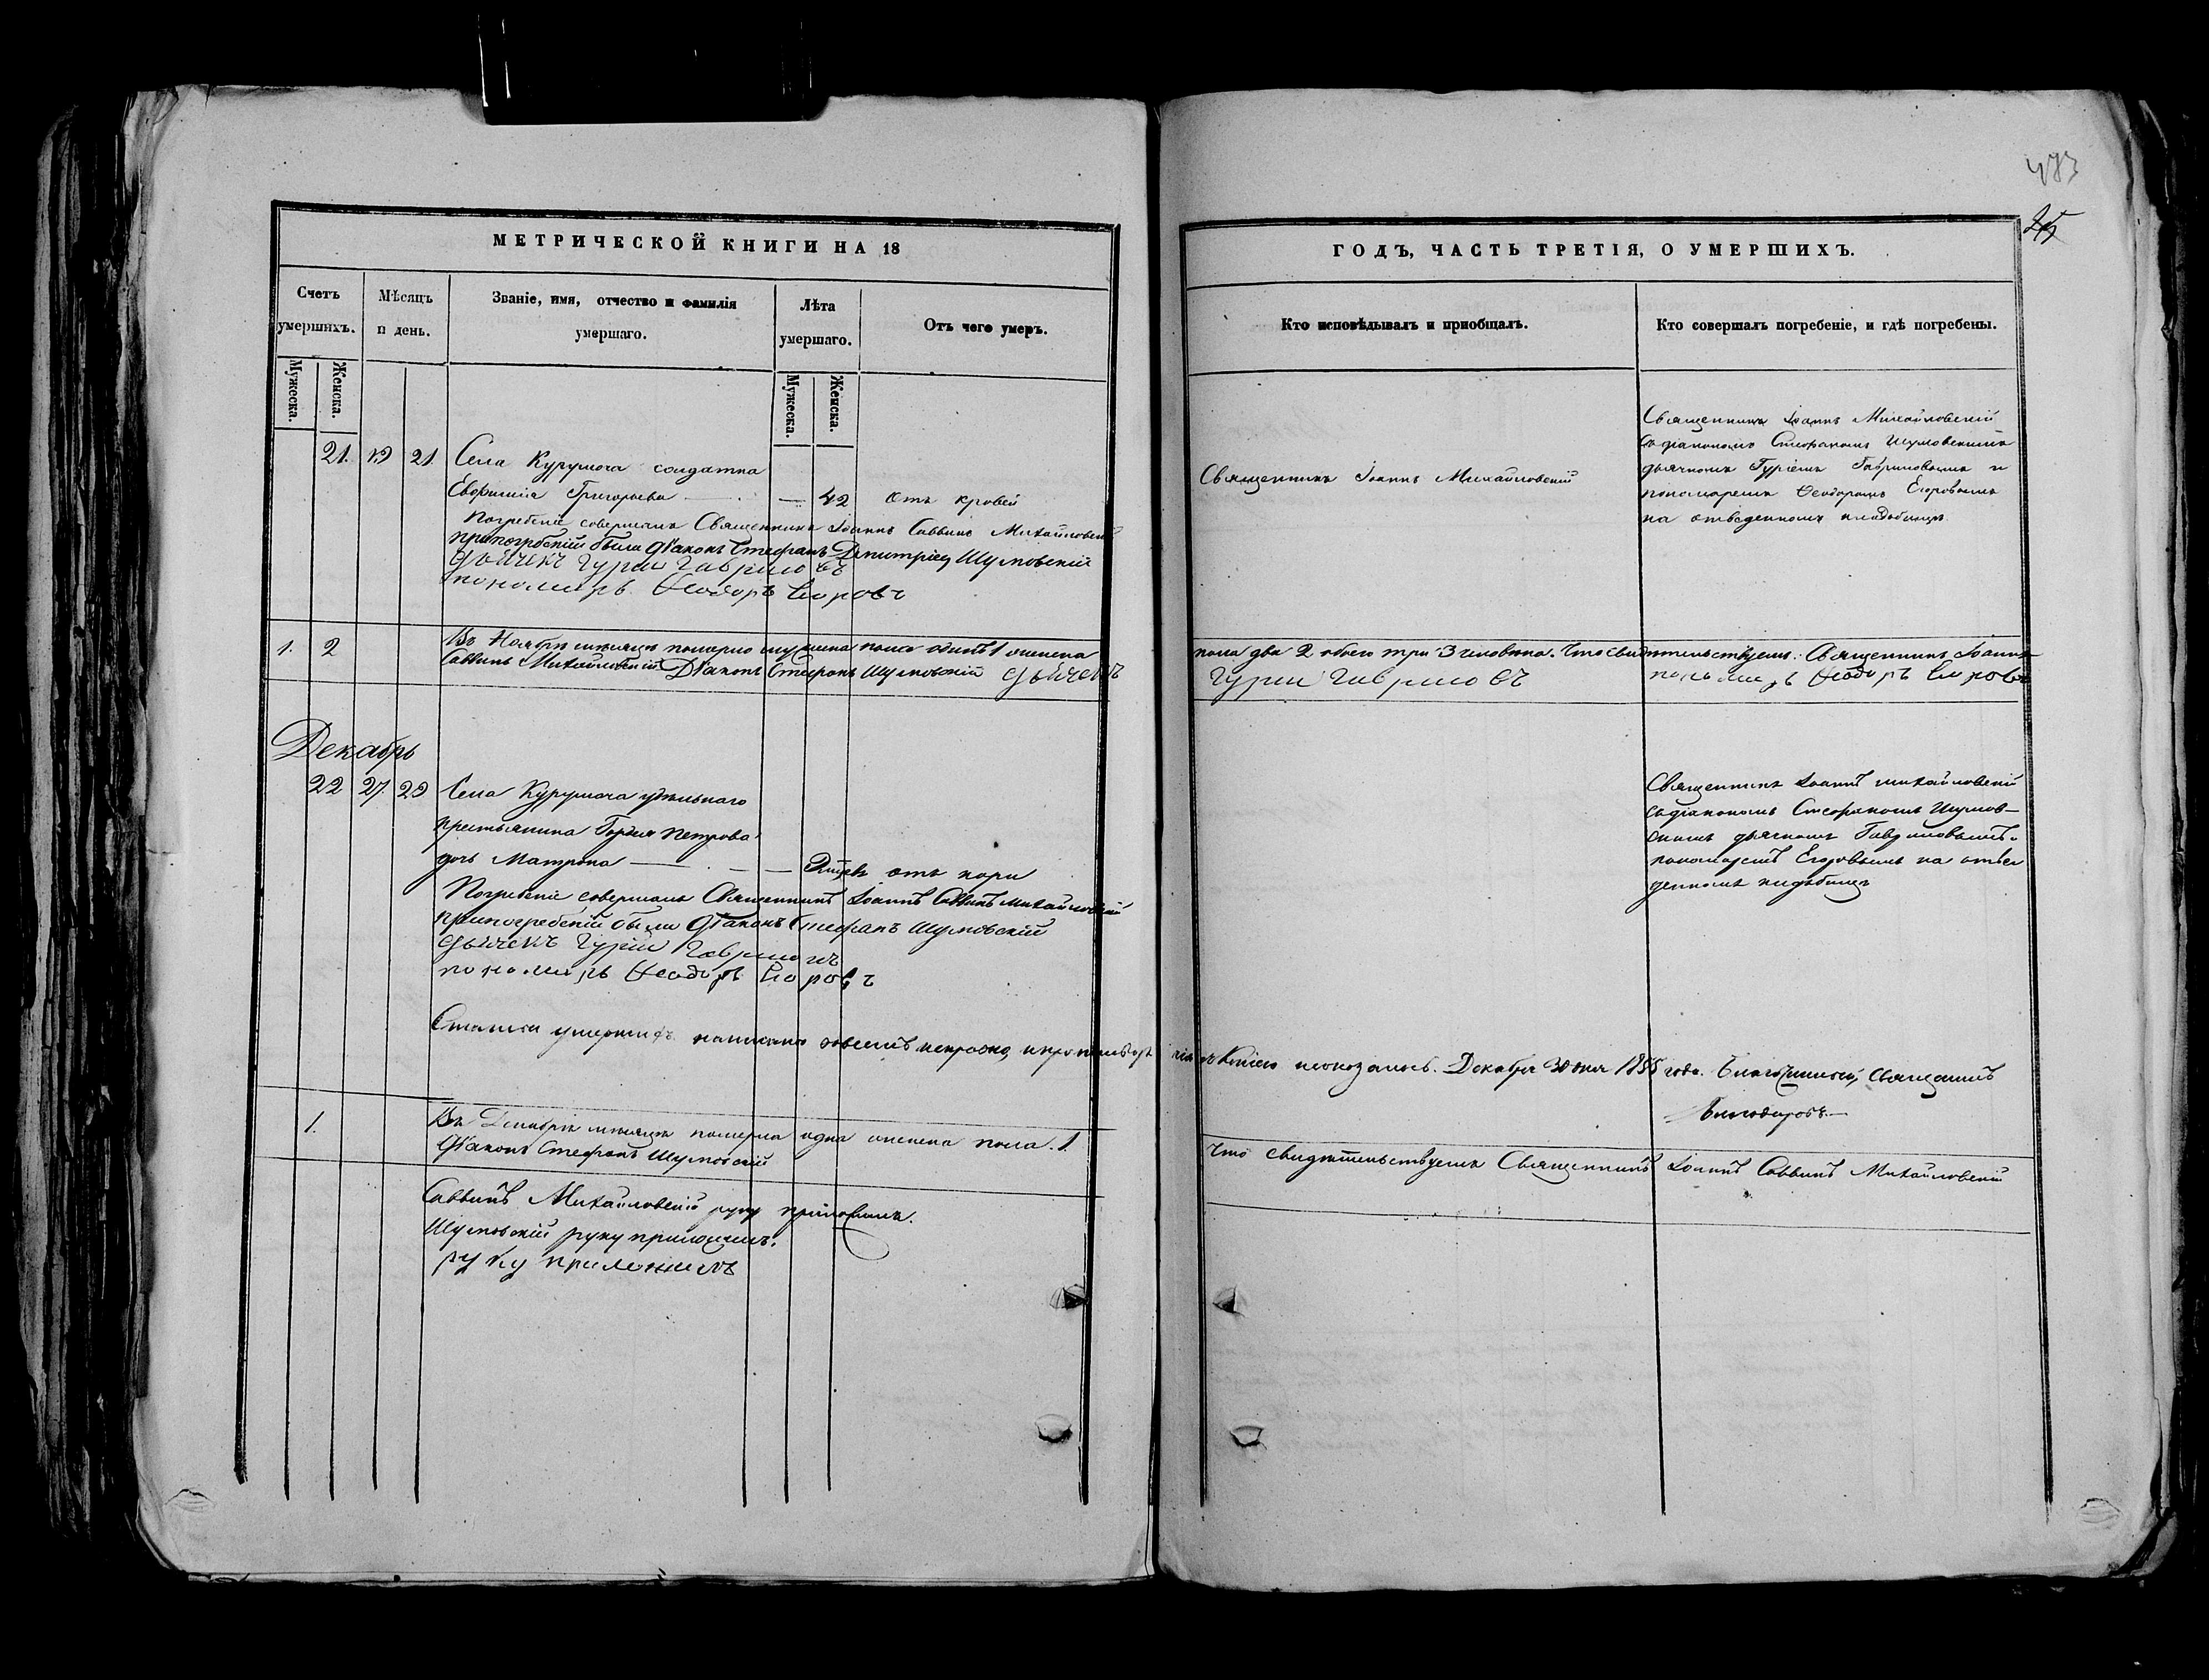 МЕТРИЧЕСКОЙ КНИГИ НА 18
Счетъ умершихъ.
Мѣсяцъ и день.
Званіе, имя, отчество и фамилія умершаго.
Лѣта умершаго.
Отъ чего умеръ.
Мужеска.
Женска.
Мужеска.
Женска.
21. 19 21 Села Курумоча солдатка
Евфимія Григорьева — — 42 отъ кровей
Погребеніе совершалъ Священникъ Іоаннъ Саввинъ Михайловскій
припогребеніи были Діаконъ Стефанъ Димитріев Шумовскій
дьячекъ Гурій Гавриловъ
пономарь Ѳеодоръ Егоровъ
1. 2 Въ Ноябрѣ мѣсяцѣ померло мужеска пола одинъ 1 женска
Саввинъ Михайловскій Діаконъ Стефанъ Шумовскій дьячекъ
Декабрь
22 27 29 Села Курумоча удѣльнаго
крестьянина Петрова
дочь Матрона — — — отъ кори
Погребеніе совершалъ Священникъ Іоаннъ Саввинъ Михайловскій
припогребеніи были Діаконъ Стефанъ Шумовскій
дьячекъ Гурій Гавриловъ
пономарь Ѳеодоръ Егоровъ
умершихъ написано
1. Въ Декабрѣ мѣсяцѣ померла одна женска пола. 1.
Діаконъ Стефанъ Шумовскій
Саввинъ Михайловскій руку приложилъ.
Шумовскій руку приложилъ.
руку приложилъ
473
25
ГОДЪ, ЧАСТЬ ТРЕТІЯ, О УМЕРШИХЪ.
Кто исповѣдывалъ и пріобщалъ.
Кто совершалъ погребеніе, и гдѣ погребены.
Священникъ Іоаннъ Михайловскій
Священникъ Іоаннъ Михайловскій
съ діакономъ Стефаномъ Шумовскимъ
дьячкомъ Гуріемъ Гавриловымъ и
пономаремъ Ѳеодоромъ Егоровымъ
на отведенномъ кладбищѣ
пола два 2 обоего три 3 человѣка. Что свидѣтельствуемъ: Священникъ Іоаннъ
Гурій Гавриловъ пономарь Ѳеодоръ Егоровъ
Священникъ Іоаннъ Михайловскій
съ діакономъ Стефаномъ Шумов-
скимъ дьячкомъ Гавриловымъ
пономаремъ Егоровымъ на отве
денномъ кладбищѣ
неоказалось. Декабря 30 дня 1855 года. Благочинный, Священникъ
Что свидѣтельствуемъ Священникъ Іоаннъ Саввинъ Михайловскій